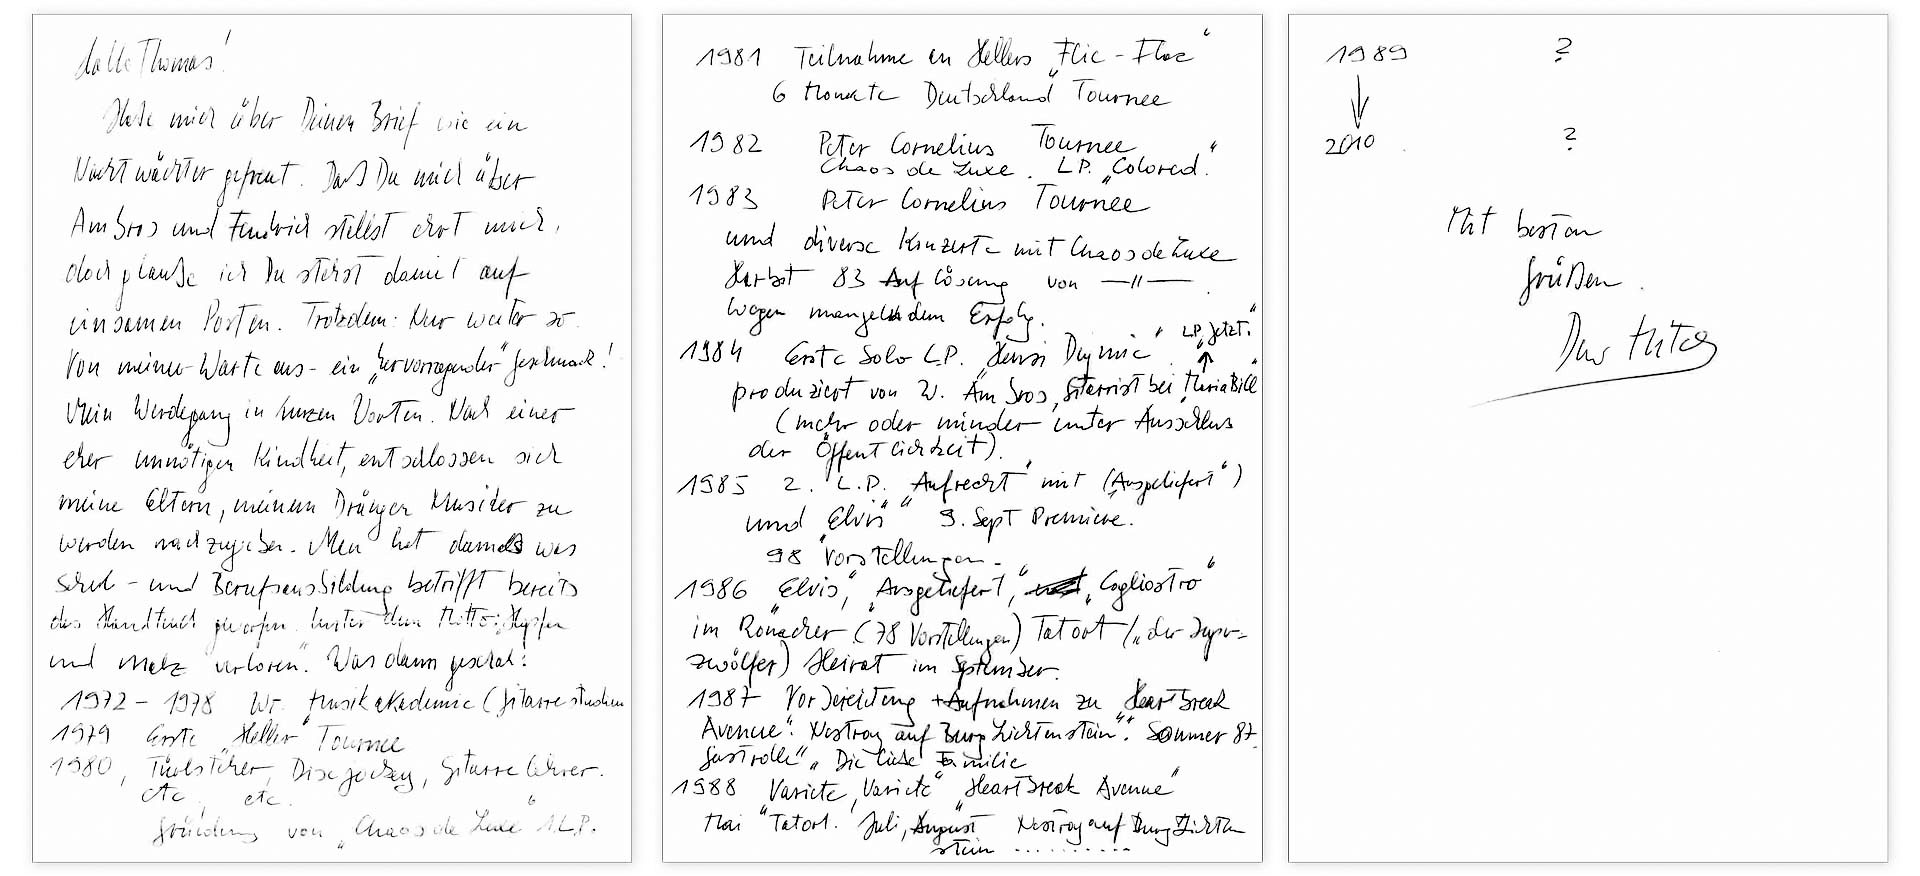 Hallo Thomas!
Habe mich über Deinen Brief wie ein
Nachtwächter gefreut. Daß Du mich über
Ambros und Fendrich stellst ehrt mich,
doch glaube ich Du stehst damit auf
einsamen Posten. Trotzdem: Nur weiter so.
Von meiner Warte aus - ein „hervorragender" Geschmack!
Mein Werdegang in kurzen Worten. Nach einer
eher unnötigen Kindheit, entschlossen sich
meine Eltern, meinem Drängen Musiker zu
werden nachzugeben. Man hat damals was
Schul- und Berufsausbildung betrifft bereits
das Handtuch geworfen. Unter dem Motto: „Hopfen
und Malz verloren". Was dann geschah:
1972 - 1978 Wr. Musikakademie (Gitarrestudium
1979 Erste „Heller" Tournee
1980, Türlsteher, Discjockey, Gitarrelehrer.
etc., etc.
Gründung von „Chaos de Luxe" 1. L.P.
1981 Teilnahme an Hellers „Flic - Flac"
6 Monate Deutschland Tournee
1982 Peter Cornelius Tournee
Chaos de Luxe. LP. „Colored".
1983 Peter Cornelius Tournee
und diverse Konzerte mit Chaos de Luxe
Herbst 83 Auflösung von —"—.
Wegen mangelndem Erfolg.
1984 Erste Solo L.P. „Hansi Dujmic" LP. „Jetzt."
produziert von W. Ambros, Gitarrist bei „Maria Bill"
(mehr oder minder unter Ausschluss
der Öffentlichkeit).
1985 2. L.P. „Aufrecht" mit („Ausgeliefert")
und „Elvis" 9. Sept Premiere.
98 Vorstellungen.
1986 „Elvis", „Ausgeliefert", „Cagliostro"
im Ronacher (78 Vorstellungen) Tatort („der
zwölfer) Heirat im September.
1987 Vorbereitung + Aufnahmen zu „Heartbreak
Avenue". Nestroy auf Burg Lichtenstein". Sommer 87.
Gastrolle „Die liebe Familie"
1988 Variete, Variete" „Heartbreak Avenue"
Mai "Tatort. Juli, August Nestroy auf Burg Lichten
stein ..........
1989 ?
↓
2010 . ?
Mit besten
Grüßen.